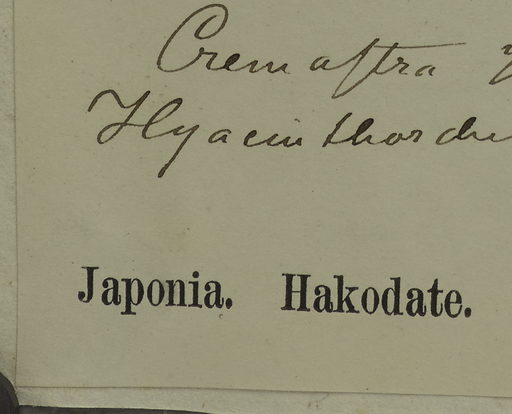 Cremastra
Hyacinthorchi
Japonia. Hakodate.